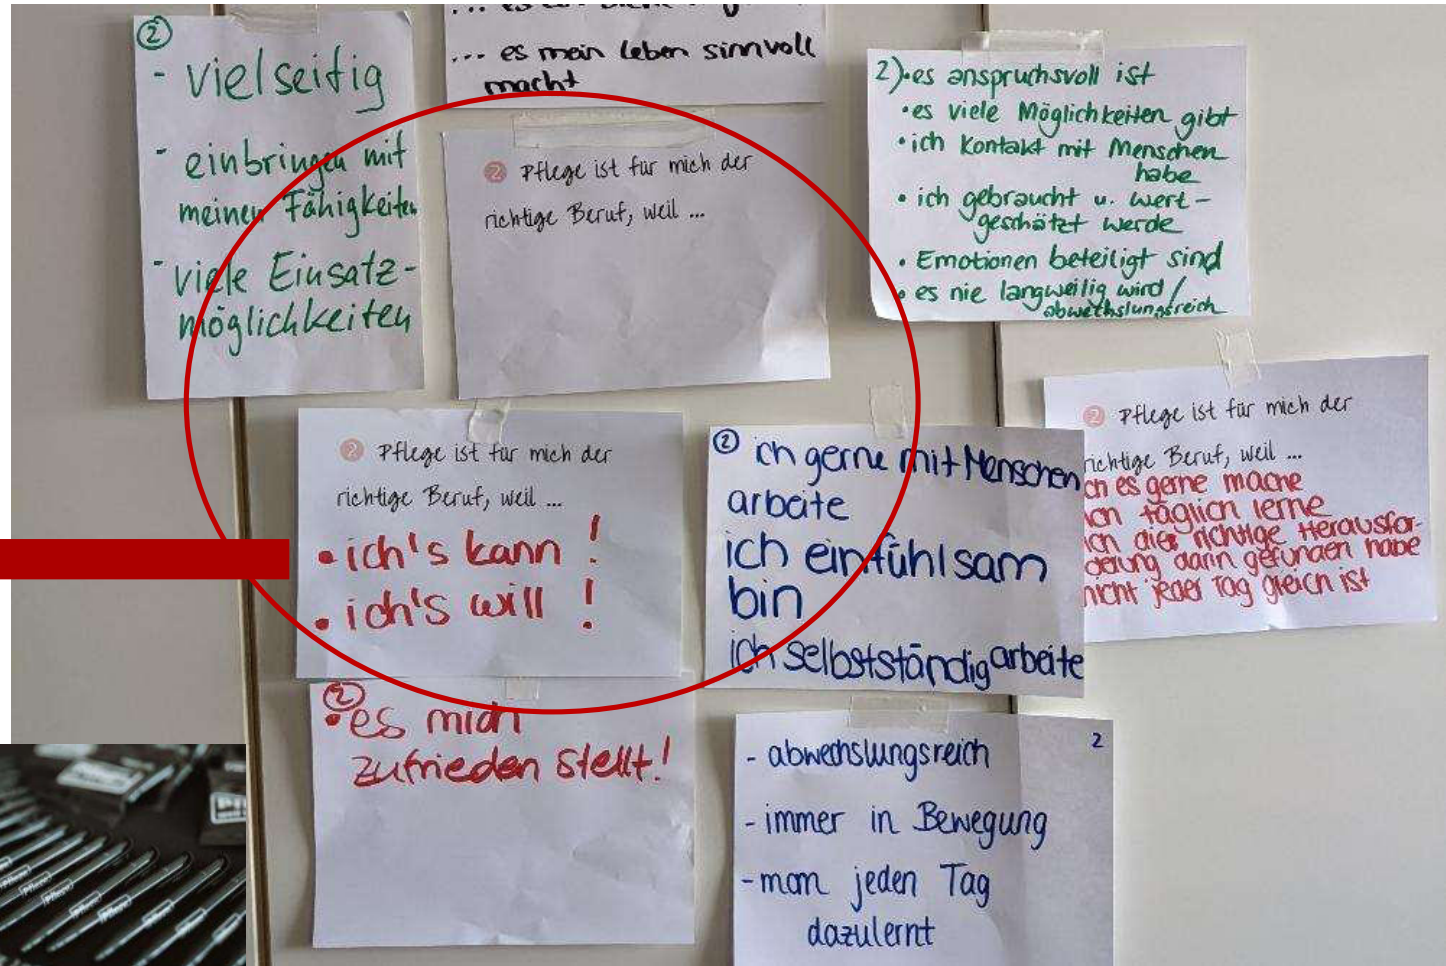 ②
- vielseitig
- einbringen mit
meinen Fähigkeiten
- viele Einsatz-
möglichkeiten
... es mein leben sinnvoll
macht
2 Pflege ist für mich der
richtige Beruf, weil ...
2) • es anspruchsvoll ist
• es viele Möglichkeiten gibt
• ich Kontakt mit Menschen
habe
• ich gebraucht u. wert-
geschätzt werde
• Emotionen beteiligt sind
• es nie langweilig wird /
abwechslungsreich
2 Pflege ist für mich der
richtige Beruf, weil ...
• ich's kann !
• ich's will !
② ich gerne mit Menschen
arbeite
ich einfühlsam
bin
ich selbstständig arbeite
2 Pflege ist für mich der
richtige Beruf, weil ...
ich es gerne mache
ich täglich lerne
ich die richtige Herausfor-
derung darin gefunden habe
nicht jeder Tag gleich ist
②
• es mich
zufrieden stellt!
2
- abwechslungsreich
- immer in Bewegung
- man jeden Tag
dazulernt